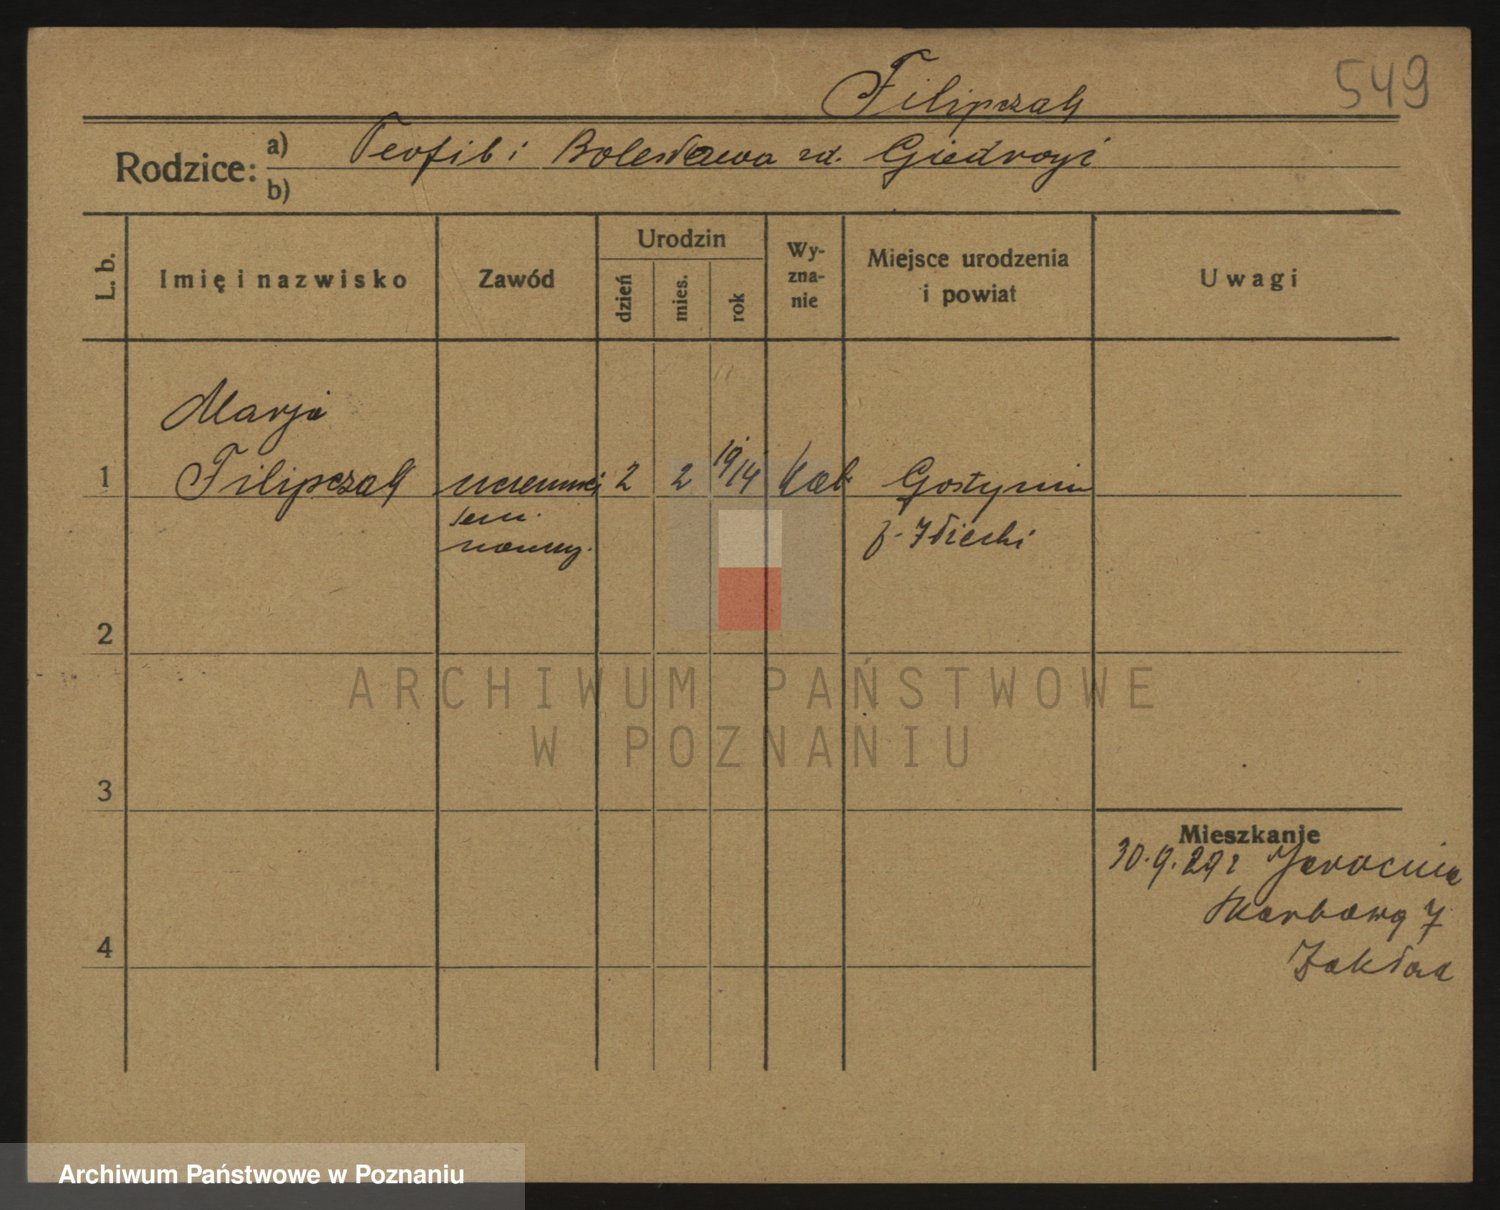 549
Filipczak
Rodzice: a) Teofil i Bolesława zd. Giedroyć
b)
L. b.
Imię i nazwisko
Zawód
Urodzin
dzień
mies.
rok
Wy-
zna-
nie
Miejsce urodzenia
i powiat
Uwagi
Marja
1 Filipczak 2 2 1914 kat. Gostynin
sem.
2
3
4
Mieszkanie
30.9.29 r Jarocin
Skarbowa 7
Zakład
ARCHIWUM PAŃSTWOWE
W POZNANIU
Archiwum Państwowe w Poznaniu